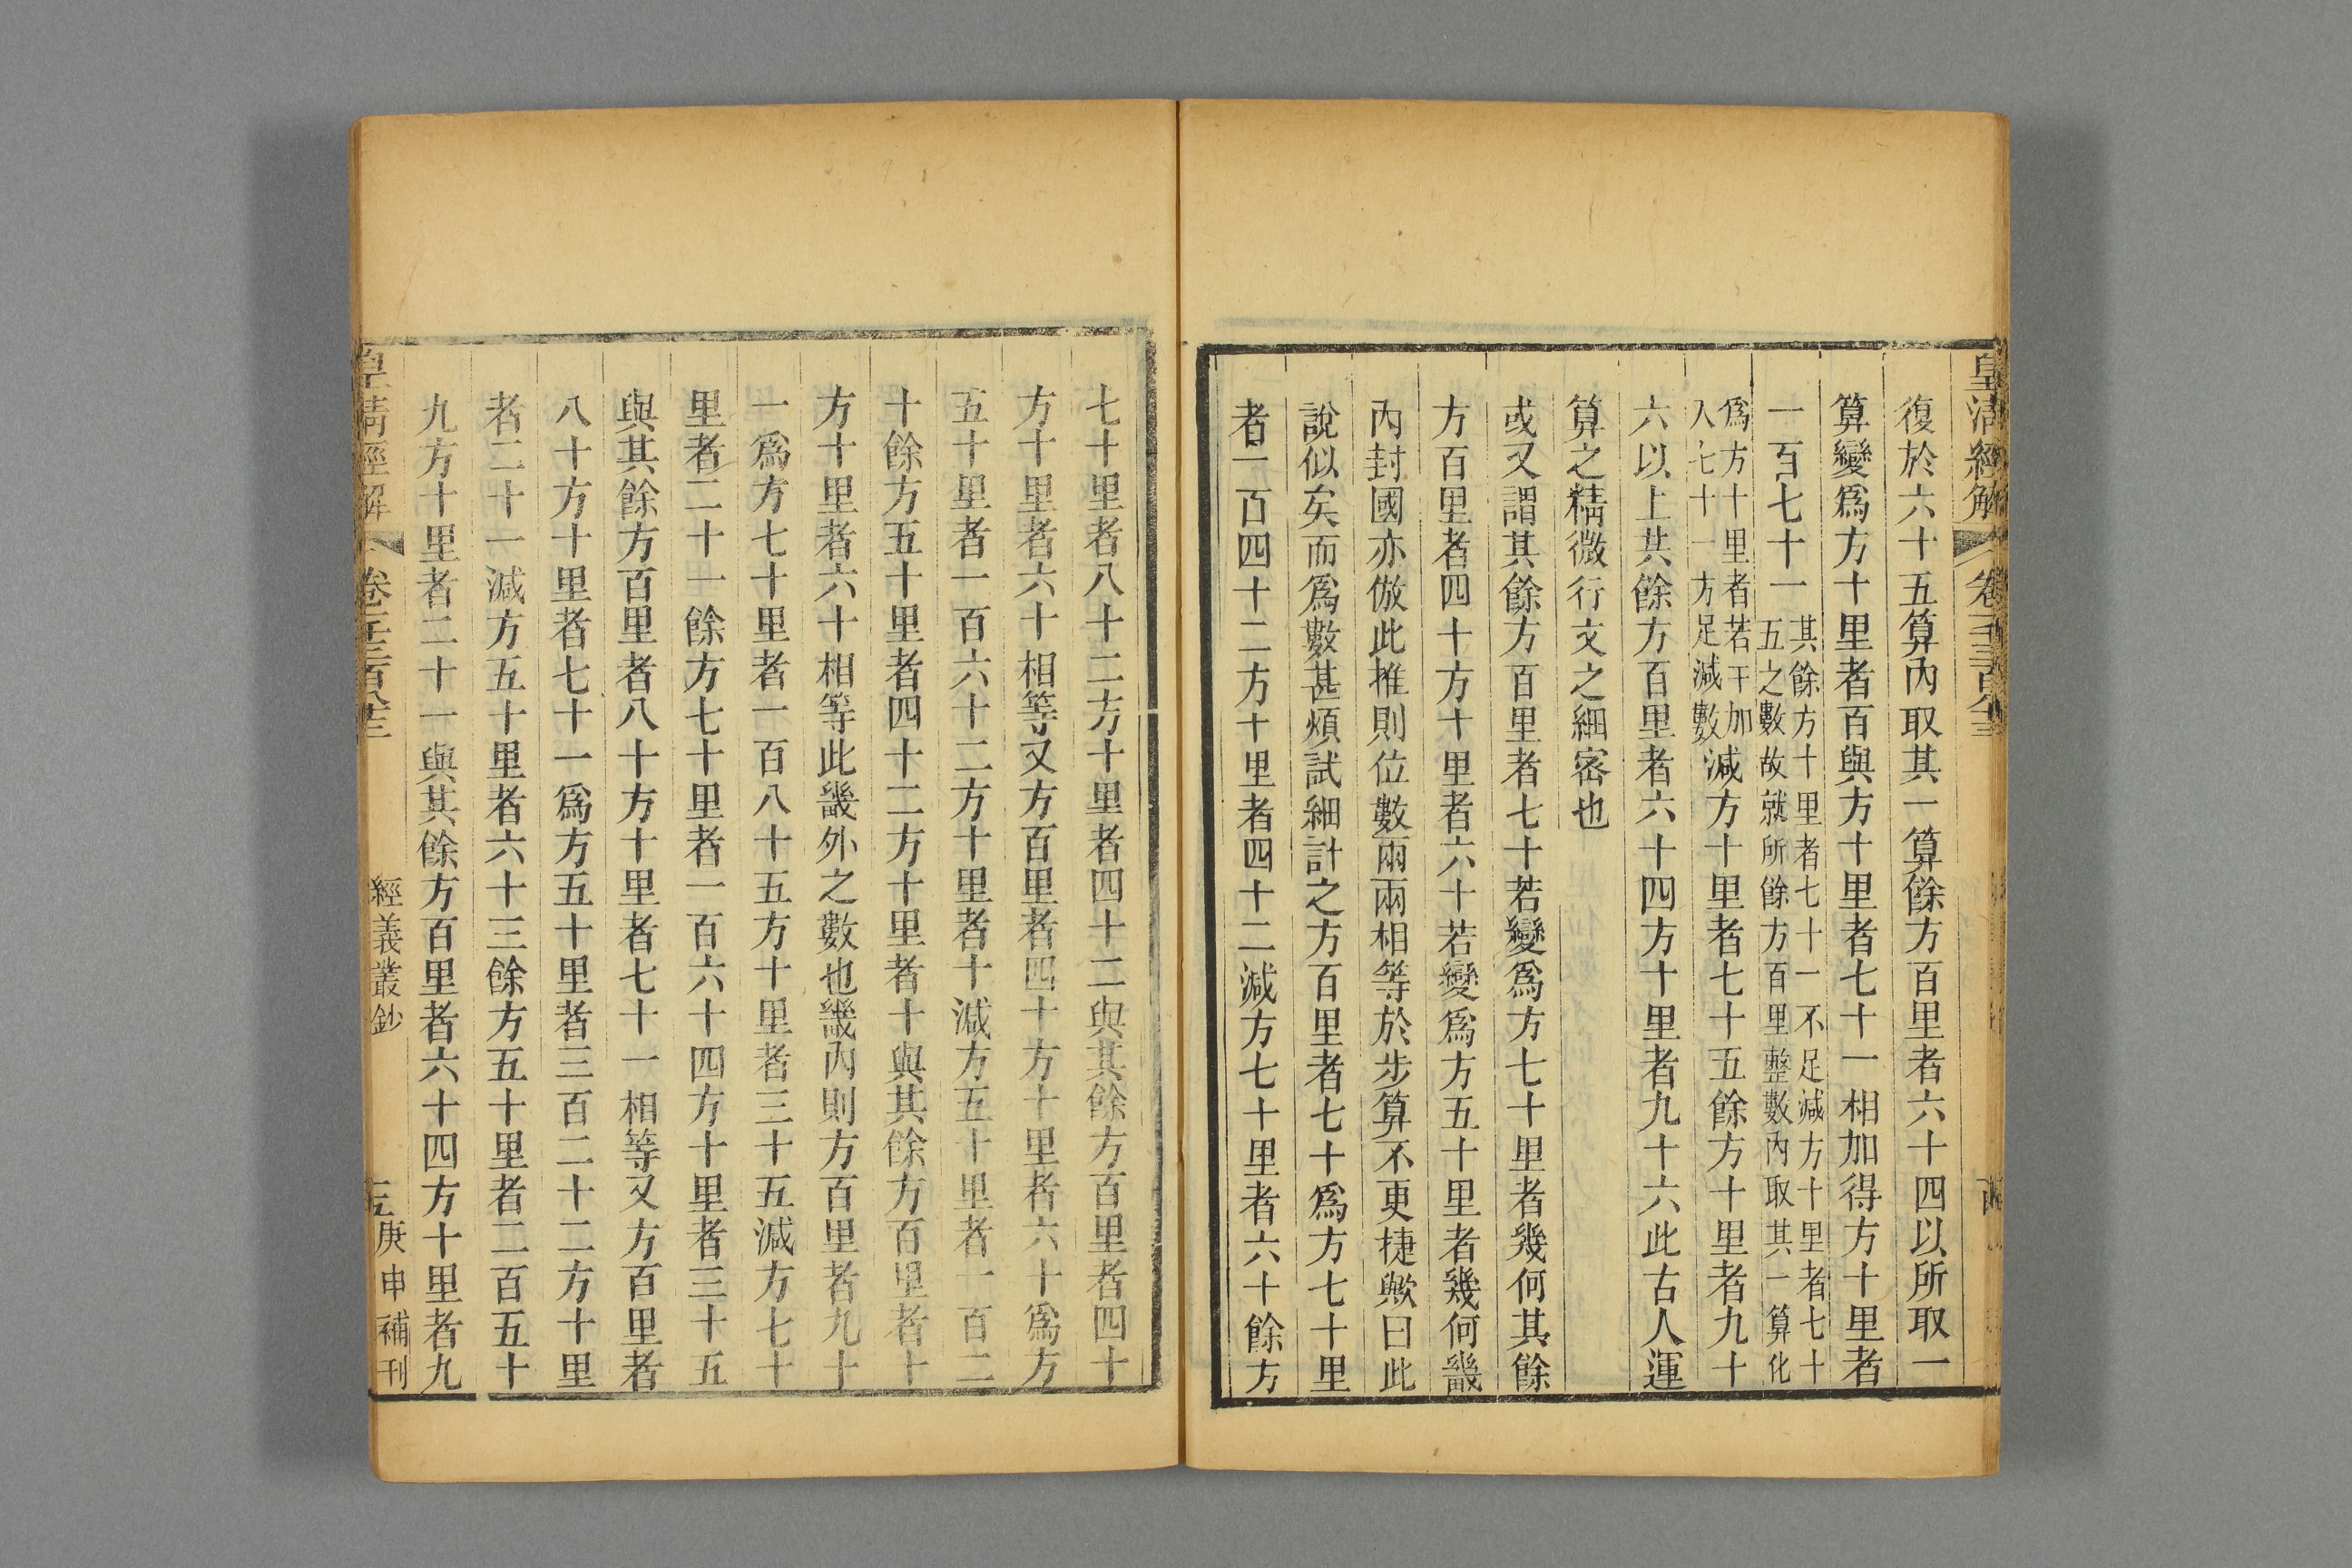 皇清經解
復於六十五算內取其一算餘方百里者六十四以所取一
算變爲方十里者百與方十里者七十一相加得方十里者
一百七十一其餘方十里者七十一不足減方十里者七十
五之數故就所餘方百里整數內取其一算化
爲方十里者若干加
入七十一方足減數減方十里者七十五餘方十里者九十
六以上共餘方百里者六十四方十里者九十六此古人運
算之精微行文之細密也
或又謂其餘方百里者七十若變爲方七十里者幾何其餘
方百里者四十方十里者六十若變爲方五十里者幾何畿
內封國亦倣此推則位數兩兩相等於步算不更捷歟曰此
說似矣而爲數甚煩試細計之方百里者七十爲方七十里
者一百四十二方十里者四十二減方七十里者六十餘方
七十里者八十二方十里者四十二與其餘方百里者四十
方十里者六十相等又方百里者四十方十里者六十爲方
五十里者一百六十二方十里者十減方五十里者一百二
十餘方五十里者四十二方十里者十與其餘方百里者十
方十里者六十相等此畿外之數也畿內則方百里者九十
一爲方七十里者一百八十五方十里者三十五減方七十
里者二十一餘方七十里者一百六十四方十里者三十五
與其餘方百里者八十方十里者七十一相等又方百里者
八十方十里者七十一爲方五十里者三百二十二方十里
者二十一減方五十里者六十三餘方五十里者二百五十
九方十里者二十一與其餘方百里者六十四方十里者九
皇清經解
經義叢鈔
庚申補刊